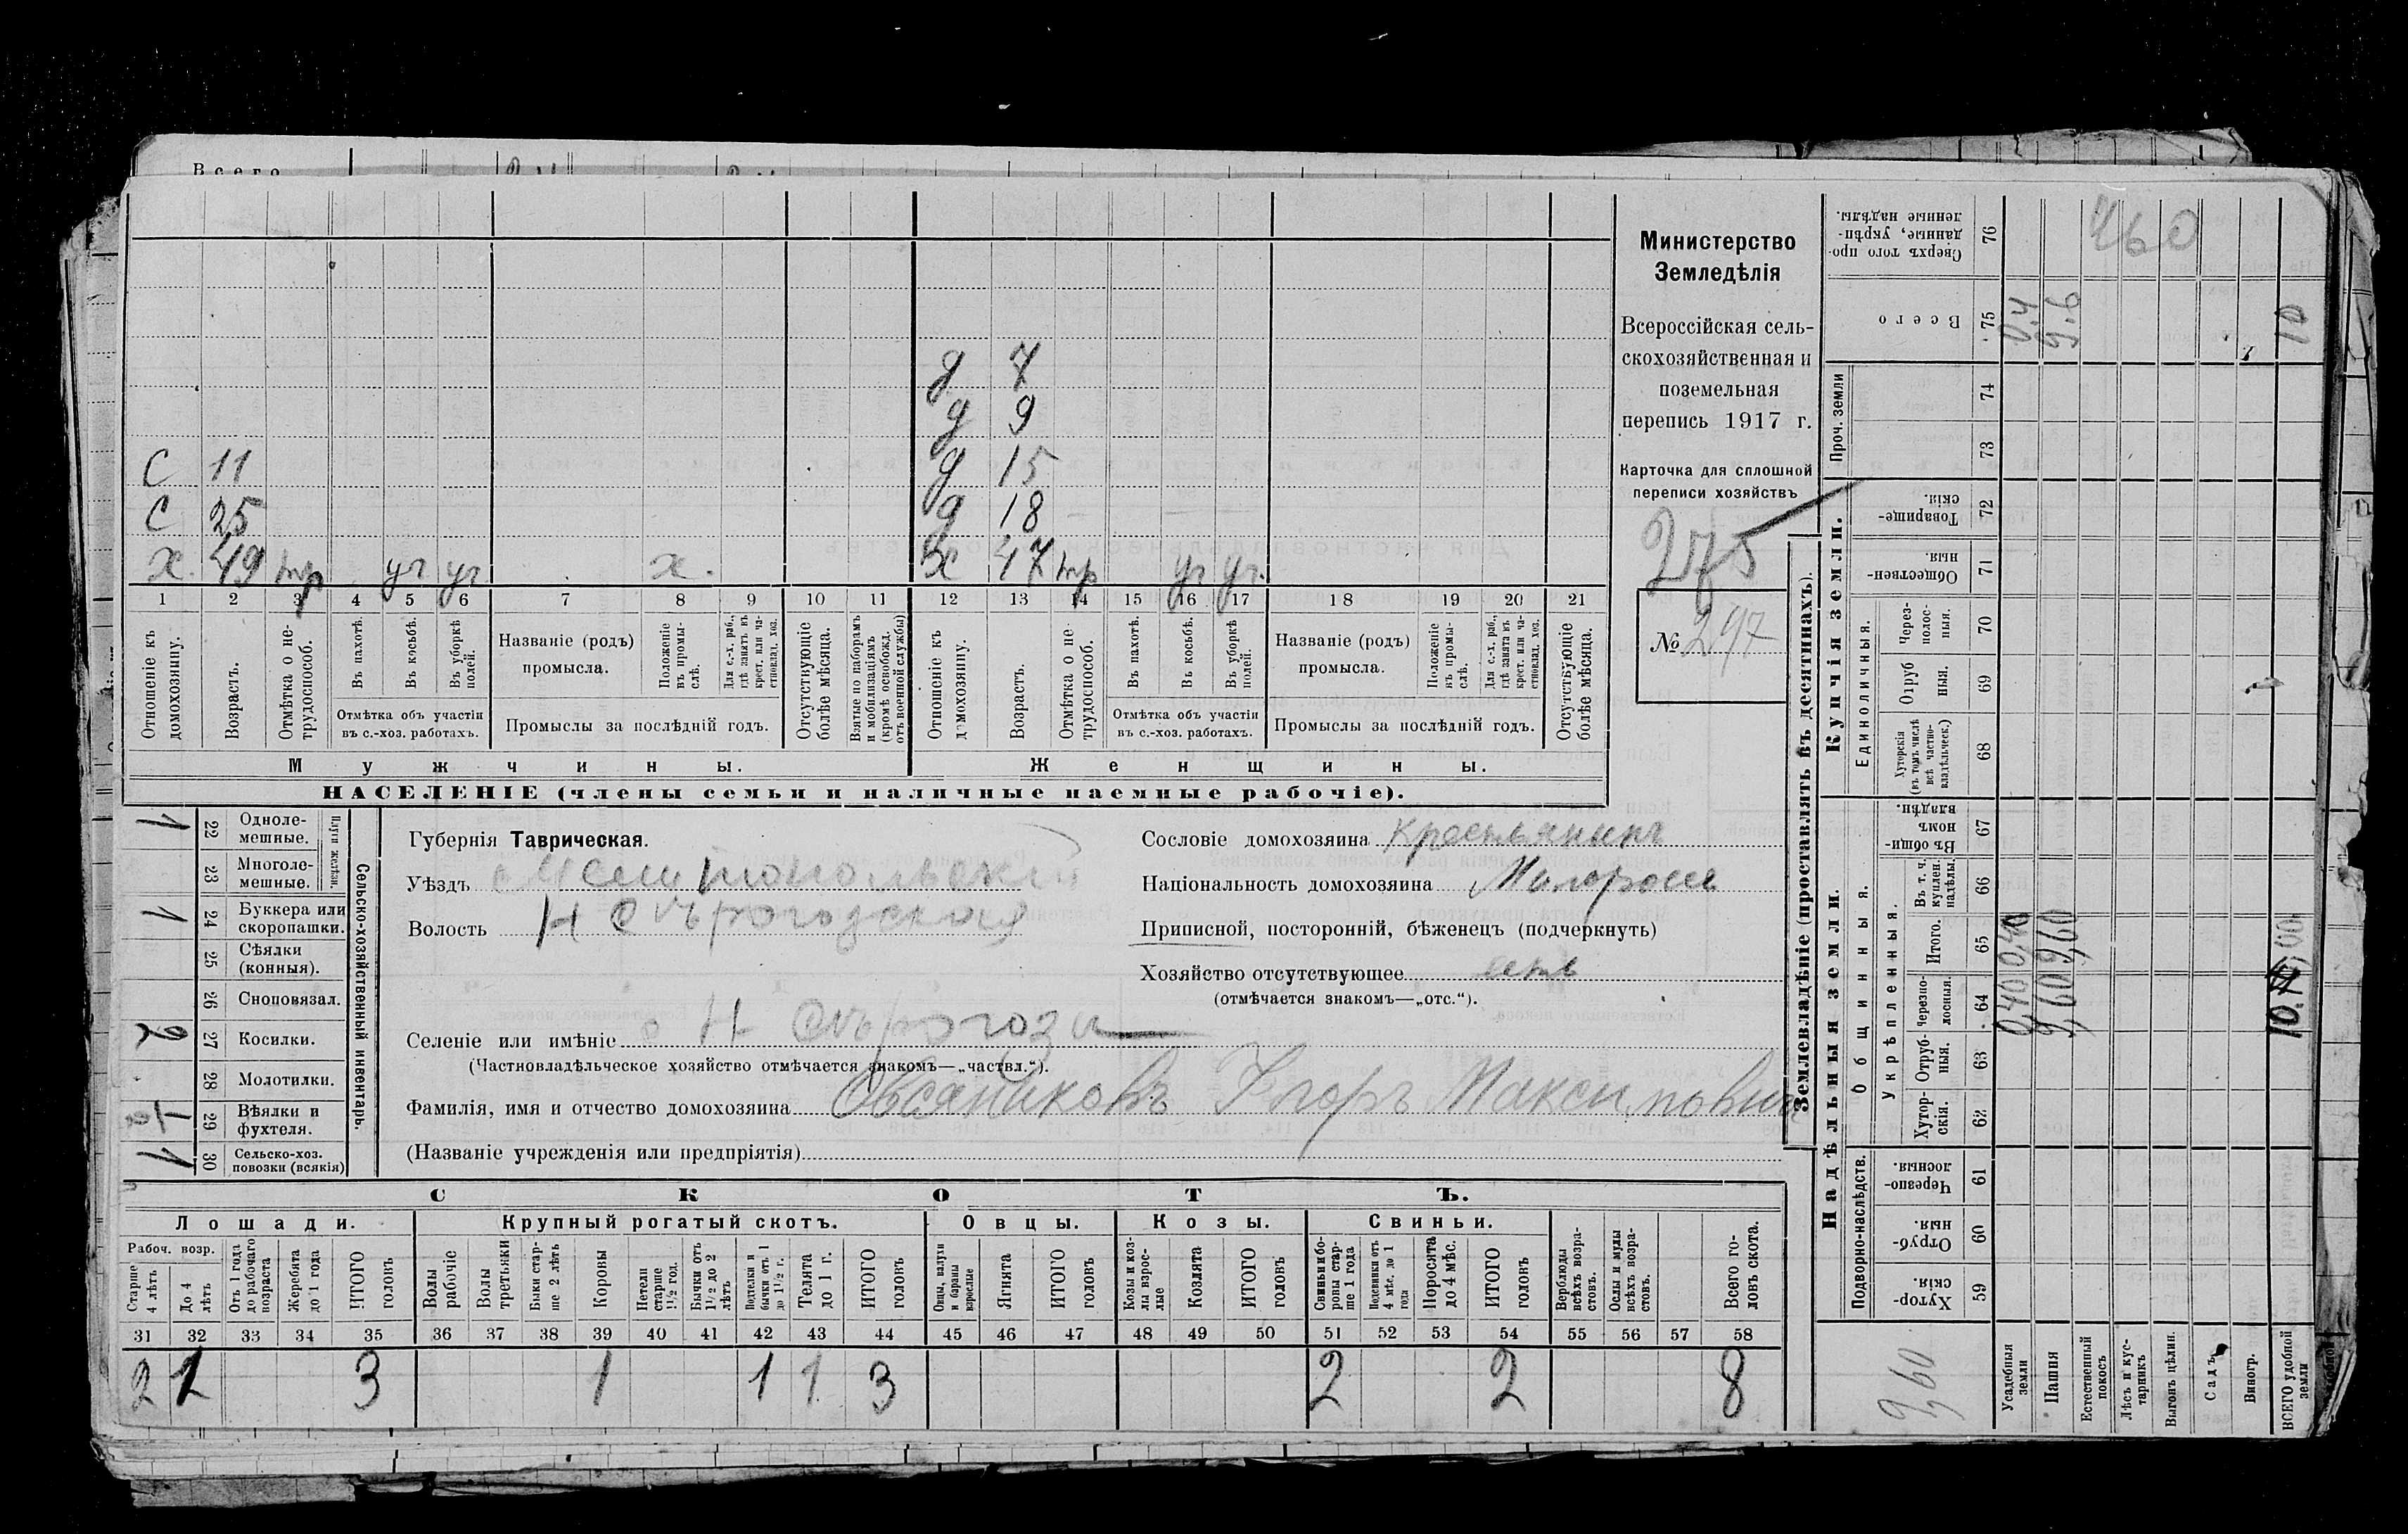 Всего
д 7
д 9
С 11 д 15
С 25 д 18
х 49 тр уч уч х. х 47 тр уч уч.
1 2 3 4 5 6 7 8 9 10 11 12 13 14 15 16 17 18 19 20 21
Отношеніе къ домохозяину.
Возрастъ.
Отмѣтка о нетрудоспособ.
Въ пахотѣ.
Въ косьбѣ.
Въ уборкѣ полей.
Отмѣтка объ участіи въ с.-хоз. работахъ.
Названіе (родъ) промысла.
Положеніе въ промыслѣ.
Для с.-х. раб., гдѣ занятъ въ крест. или частновлад. хоз.
Промыслы за послѣдній годъ.
Отсутствующіе болѣе мѣсяца.
Взятые по наборамъ и мобилизаціямъ (кромѣ освобожд. отъ военной службы)
Отношеніе къ домохозяину.
Возрастъ.
Отмѣтка о не трудоспособ.
Въ пахотѣ.
Въ косьбѣ.
Въ уборкѣ полей.
Отмѣтка объ участіи въ с.-хоз. работахъ.
Названіе (родъ) промысла.
Положеніе въ промыслѣ.
Для с.-х. раб., гдѣ занята въ крест. или частновлад. хоз.
Промыслы за послѣдній годъ.
Отсутствующіе болѣе мѣсяца.
Мужчины. Женщины.
НАСЕЛЕНІЕ (члены семьи и наличные наемные рабочіе).
Министерство
Земледѣлія
Всероссійская сель-
скохозяйственная и
поземельная
перепись 1917 г.
Карточка для сплошной
переписи хозяйствъ
275
№ 297
Сельско-хозяйственный инвентарь.
Плуги желѣзн.
1 22 Одноле-мешные.
23 Многоле-мешные.
1 24 Буккера или скоропашки.
25 Сѣялки (конныя).
26 Сноповязал.
2 27 Косилки.
28 Молотилки.
29 Вѣялки и фухтеля.
1 30 Сельско-хоз. повозки (всякія)
Губернія Таврическая.
Уѣздъ Мелитопольскій
Волость Н Сѣрогозская
Селеніе или имѣніе с Н Сѣрогозы
(Частновладѣльческое хозяйство отмѣчается знакомъ—„частвл.“).
Фамилія, имя и отчество домохозяина Овсяниковъ Егоръ Максимовичъ
(Названіе учрежденія или предпріятія)
Сословіе домохозяина Крестьянинъ
Національность домохозяина Малороссъ
Приписной, посторонній, бѣженецъ (подчеркнуть)
Хозяйство отсутствующее
(отмѣчается знакомъ—„отс.“).
СКОТЪ.
Лошади. Крупный рогатый скотъ. Овцы. Козы. Свиньи.
Рабоч. возр.
Старше 4 лѣтъ
До 4 лѣтъ
Отъ 1 года до рабочаго возраста
Жеребята до 1 года
ИТОГО головъ
Волы рабочіе
Волы третьяки
Быки старше 2 лѣтъ
Коровы
Нетели старше 1½ год.
Бычки отъ 1½ до 2 лѣтъ
Подтелки и бычки отъ 1 до 1½ г.
Телята до 1 г.
ИТОГО головъ
Овцы, валухи и бараны взрослые
Ягнята
ИТОГО головъ
Козы и козлы взрослые
Козлята
ИТОГО головъ
Свиньи и боровы старше 1 года
Подсвинки отъ 4 мѣс. до 1 года
Поросята до 4 мѣс.
ИТОГО головъ
Верблюды всѣхъ возрастовъ.
Ослы и мулы всѣхъ возрастовъ.
Всего головъ скота.
31 32 33 34 35 36 37 38 39 40 41 42 43 44 45 46 47 48 49 50 51 52 53 54 55 56 57 58
2 1 3 1 1 1 3 2 2 8
Землевладѣніе (проставлять въ десятинахъ).
Купчія земли.
Надѣльныя земли.
Проч. земли
Единоличныя.
Общинныя.
Укрѣпленныя.
Подворно-наслѣдств.
Сверхъ того проданные, укрѣпленные надѣлы. 76 460
Всего 75 0.4 9.6 10
74
73
Товарищескія. 72
Общественныя 71
Черезполосныя. 70
Отрубныя. 69
Хуторскія (въ томъ числѣ всѣ частновладѣльческ.) 68
Въ общинномъ владѣн. 67
Въ т. ч. куплен. надѣлы. 66
Итого. 65 0,40 9,60
Черезполосныя. 64 0,40 9,60
Отрубныя. 63
Хуторскія. 62
Черезполосныя. 61
Отрубныя. 60
Хуторскія. 59
9,60
Усадебныя земли
Пашня
Естественный покосъ
Лѣсъ и кустарникъ
Выгонъ цѣлин.
Садъ
Виногр.
ВСЕГО удобной земли